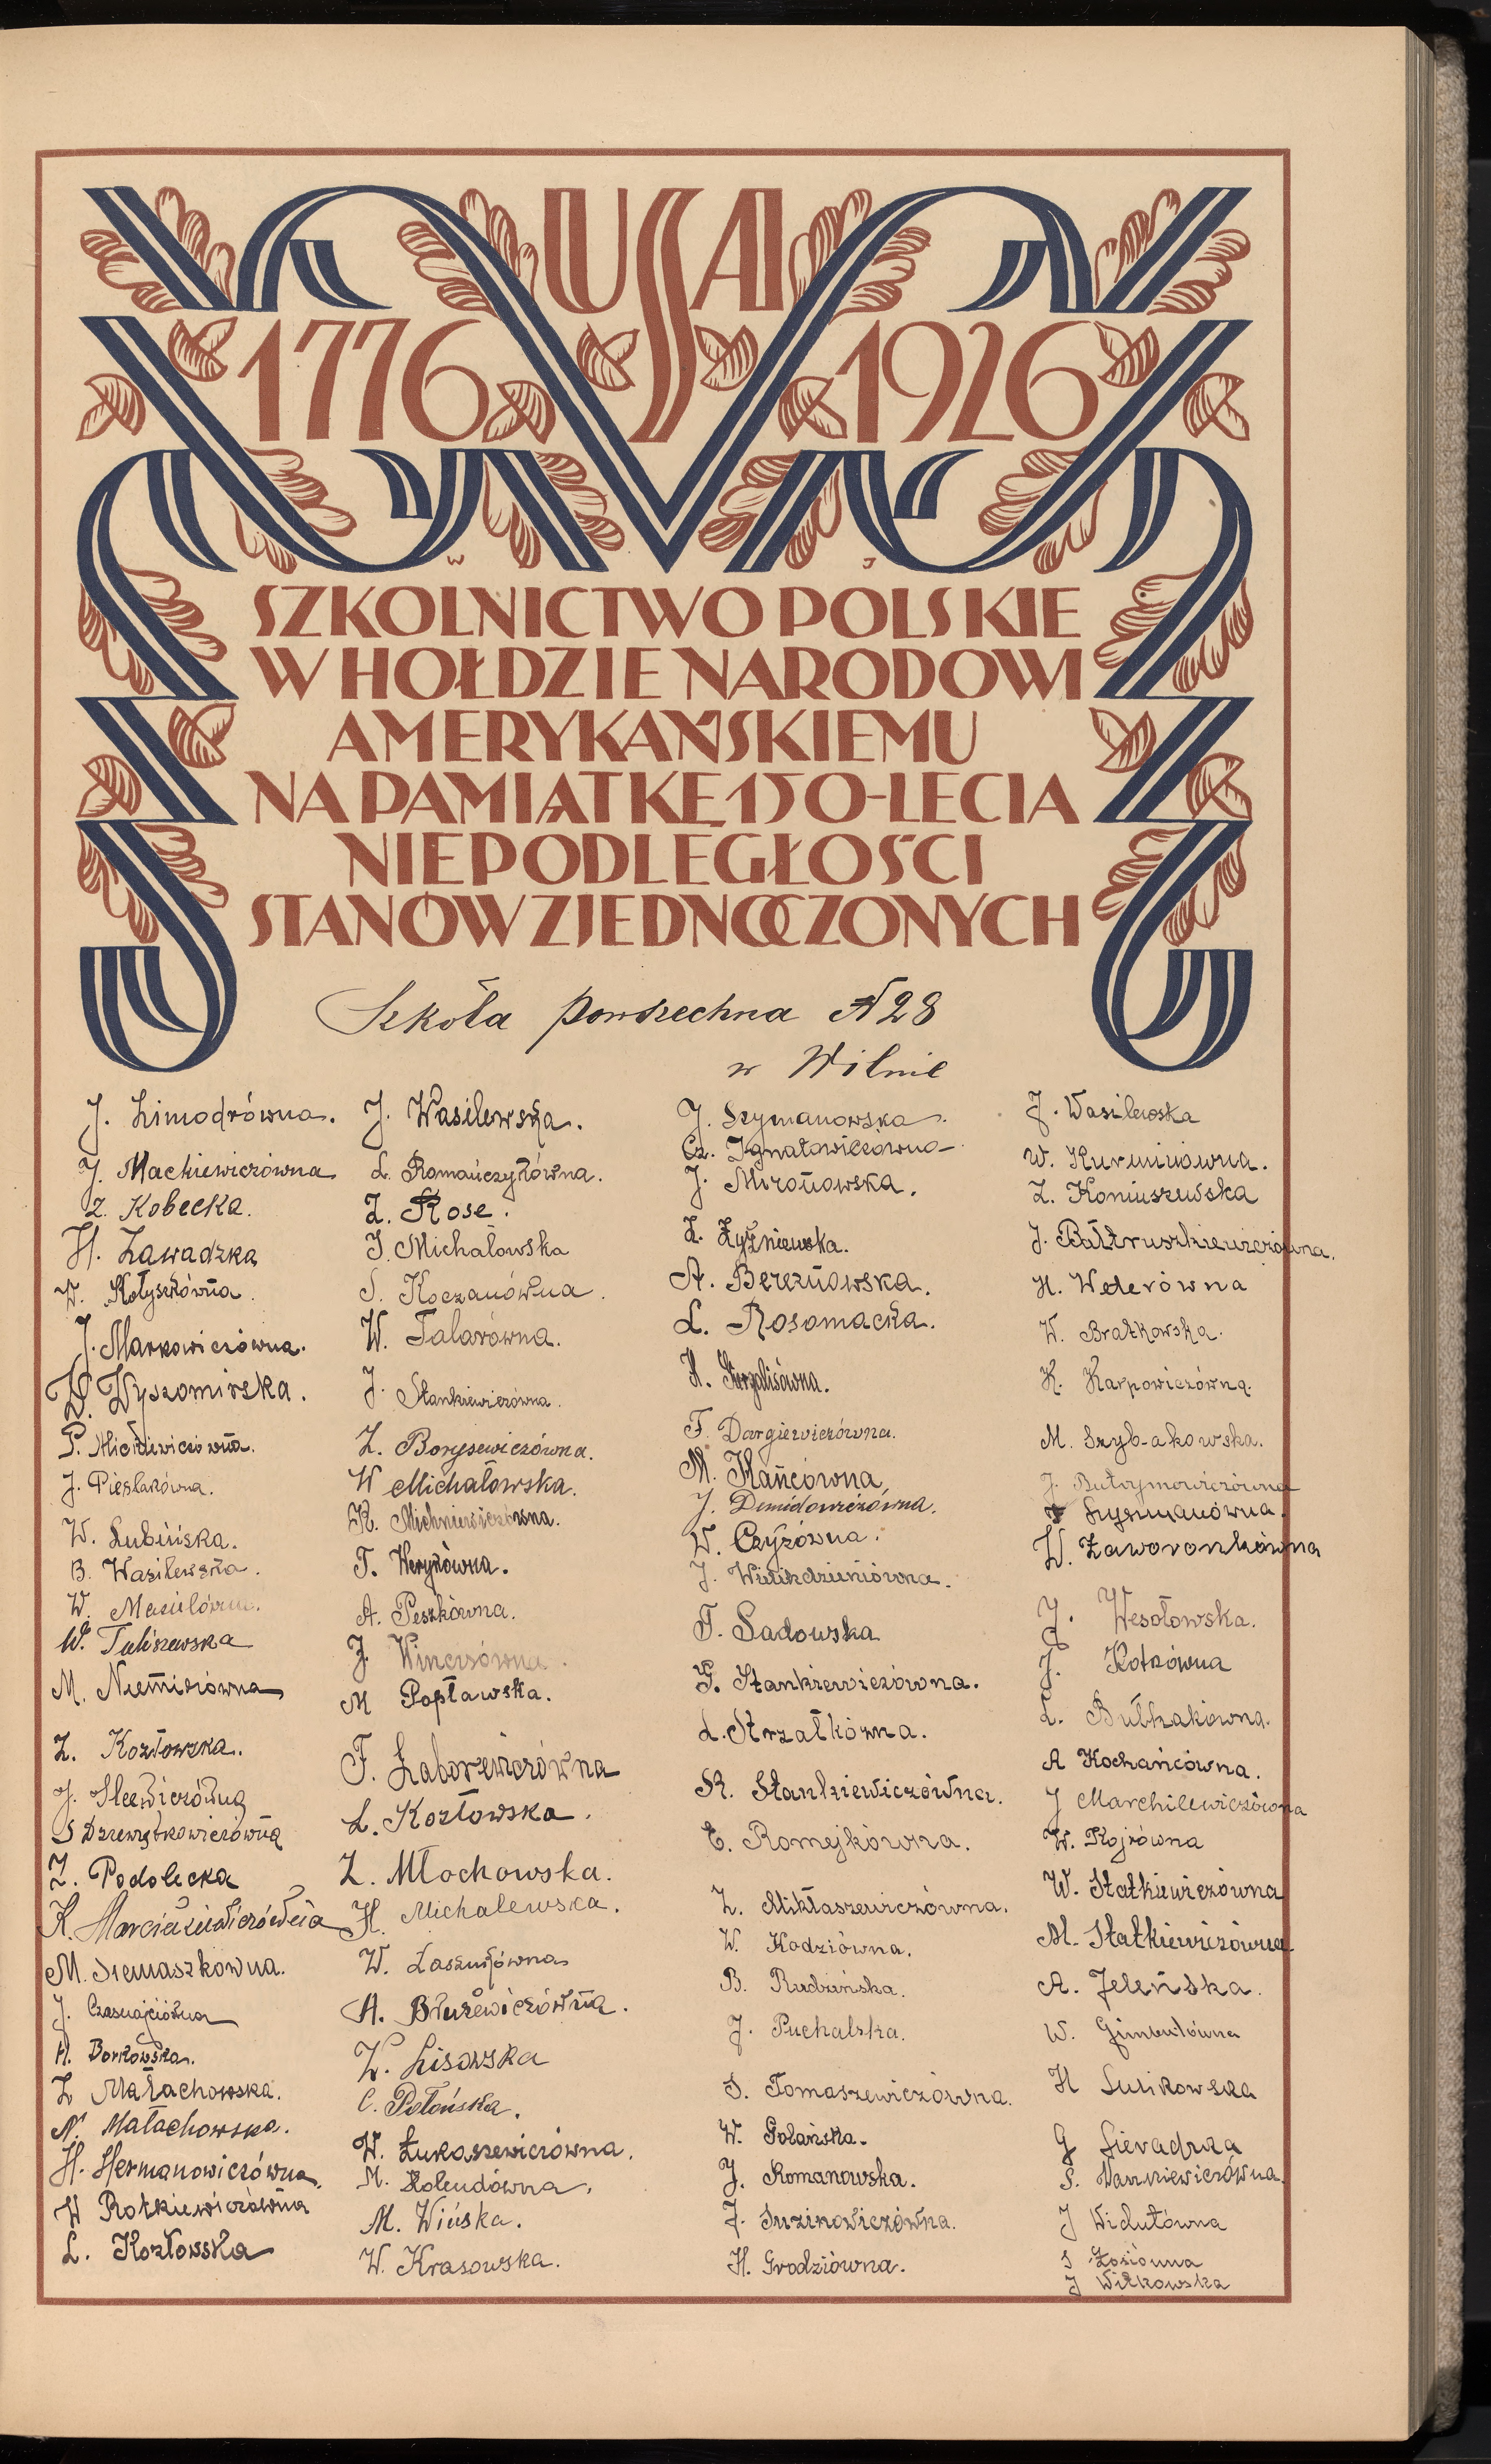 USA
1776 1926
SZKOLNICTWO POLSKIE
W HOŁDZIE NARODOWI
AMERYKAŃSKIEMU
NA PAMIĄTKĘ 150-LECIA
NIEPODLEGŁOŚCI
STANÓW ZJEDNOCZONYCH
Szkoła powszechna N 28
w Wilnie
J. Limodrówna.
J. Mackiewiczówna
Z. Kobecka.
H. Zawadzka
W. Kołyszkówna.
J. Markowiczówna.
W. Wyszomirska.
P. Mickiewiczówna.
J. Pieślakówna.
W. Lubińska.
B. Wasilewska.
W.
W. Tuliszewska
M.
Z. Kozłowska.
J.
S
Z. Podolecka
K.
M. Siemaszkówna.
J.
H. Borkowska.
Z Małachowska.
N. Małachowska.
H. Hermanowiczówna.
W Rotkiewiczówna
L. Kozłowska
J. Wasilewska.
L. Romańczykówna.
Z. Rose.
J. Michałowska
S. Koczanówna.
W. Talarówna.
J. Stankiewiczówna.
Z. Borysewiczówna.
W Michałowska.
K. Michniewiczówna.
T. Werykówna.
A. Peszkówna.
J. Winczówna.
M Popławska.
F. Laborewiczówna
L. Kozłowska.
Z. Młochowska.
H. Michalewska.
W.
A.
W. Lisowska
C. Połońska.
W. Łukaszewiczówna.
M. Kolendówna.
M. Wińska.
W. Krasowska.
J. Szymanowska.
Cz. Ignatowiczówna
J. Mironowska.
Z. Łyżniewska.
A. Bereznowska.
L. Rosomacka.
H.
F. Dargiewiczówna.
M. Hańcówna,
J. Demidowiczówna.
W. Czyżówna.
J.
T. Sadowska
G. Stankiewiczówna.
L. Strzałkówna.
R. Stankiewiczówna.
E. Romejkówna.
Z. Mikłaszewiczówna.
W. Kodziówna.
B. Rudzińska.
J. Puchalska.
S. Tomaszewiczówna.
W. Polańska.
J. Romanowska.
J. Suzinowiczówna.
H. Grodziówna.
J. Wasilewska
W. Kurminówna.
Z. Koniuszewska
J. Bałtruszkiewiczówna.
H. Wederówna
W. Bratkowska.
K. Karpowiczówna.
M. Szyb-akowska.
J. Butrymowiczówna
Szyszmanówna.
W. Zaworonkówna
J. Wesołowska.
J. Kotkówna
L. Bułhakówna.
A Kochańcówna.
J Marchilewiczówna
W. Kojrówna
W. Statkiewiczówna
M. Statkiewiczówna
A. Jeleńska.
W. Gimbutówna
H Sulikowska
G Sieradzka
S. Wankiewiczówna.
J Widutówna
S Łosiówna
J Witkowska